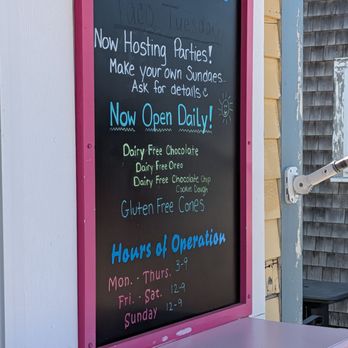 Taco Tuesday
Now Hosting Parties!
Make your own Sundaes
Ask for details
Now Open Daily!
Dairy Free Chocolate
Dairy Free Oreo
Dairy Free Chocolate Chip
Cookie Dough
Gluten Free Cones
Hours of Operation
Mon. - Thurs. 3-9
Fri. - Sat. 12-9
Sunday 12-9